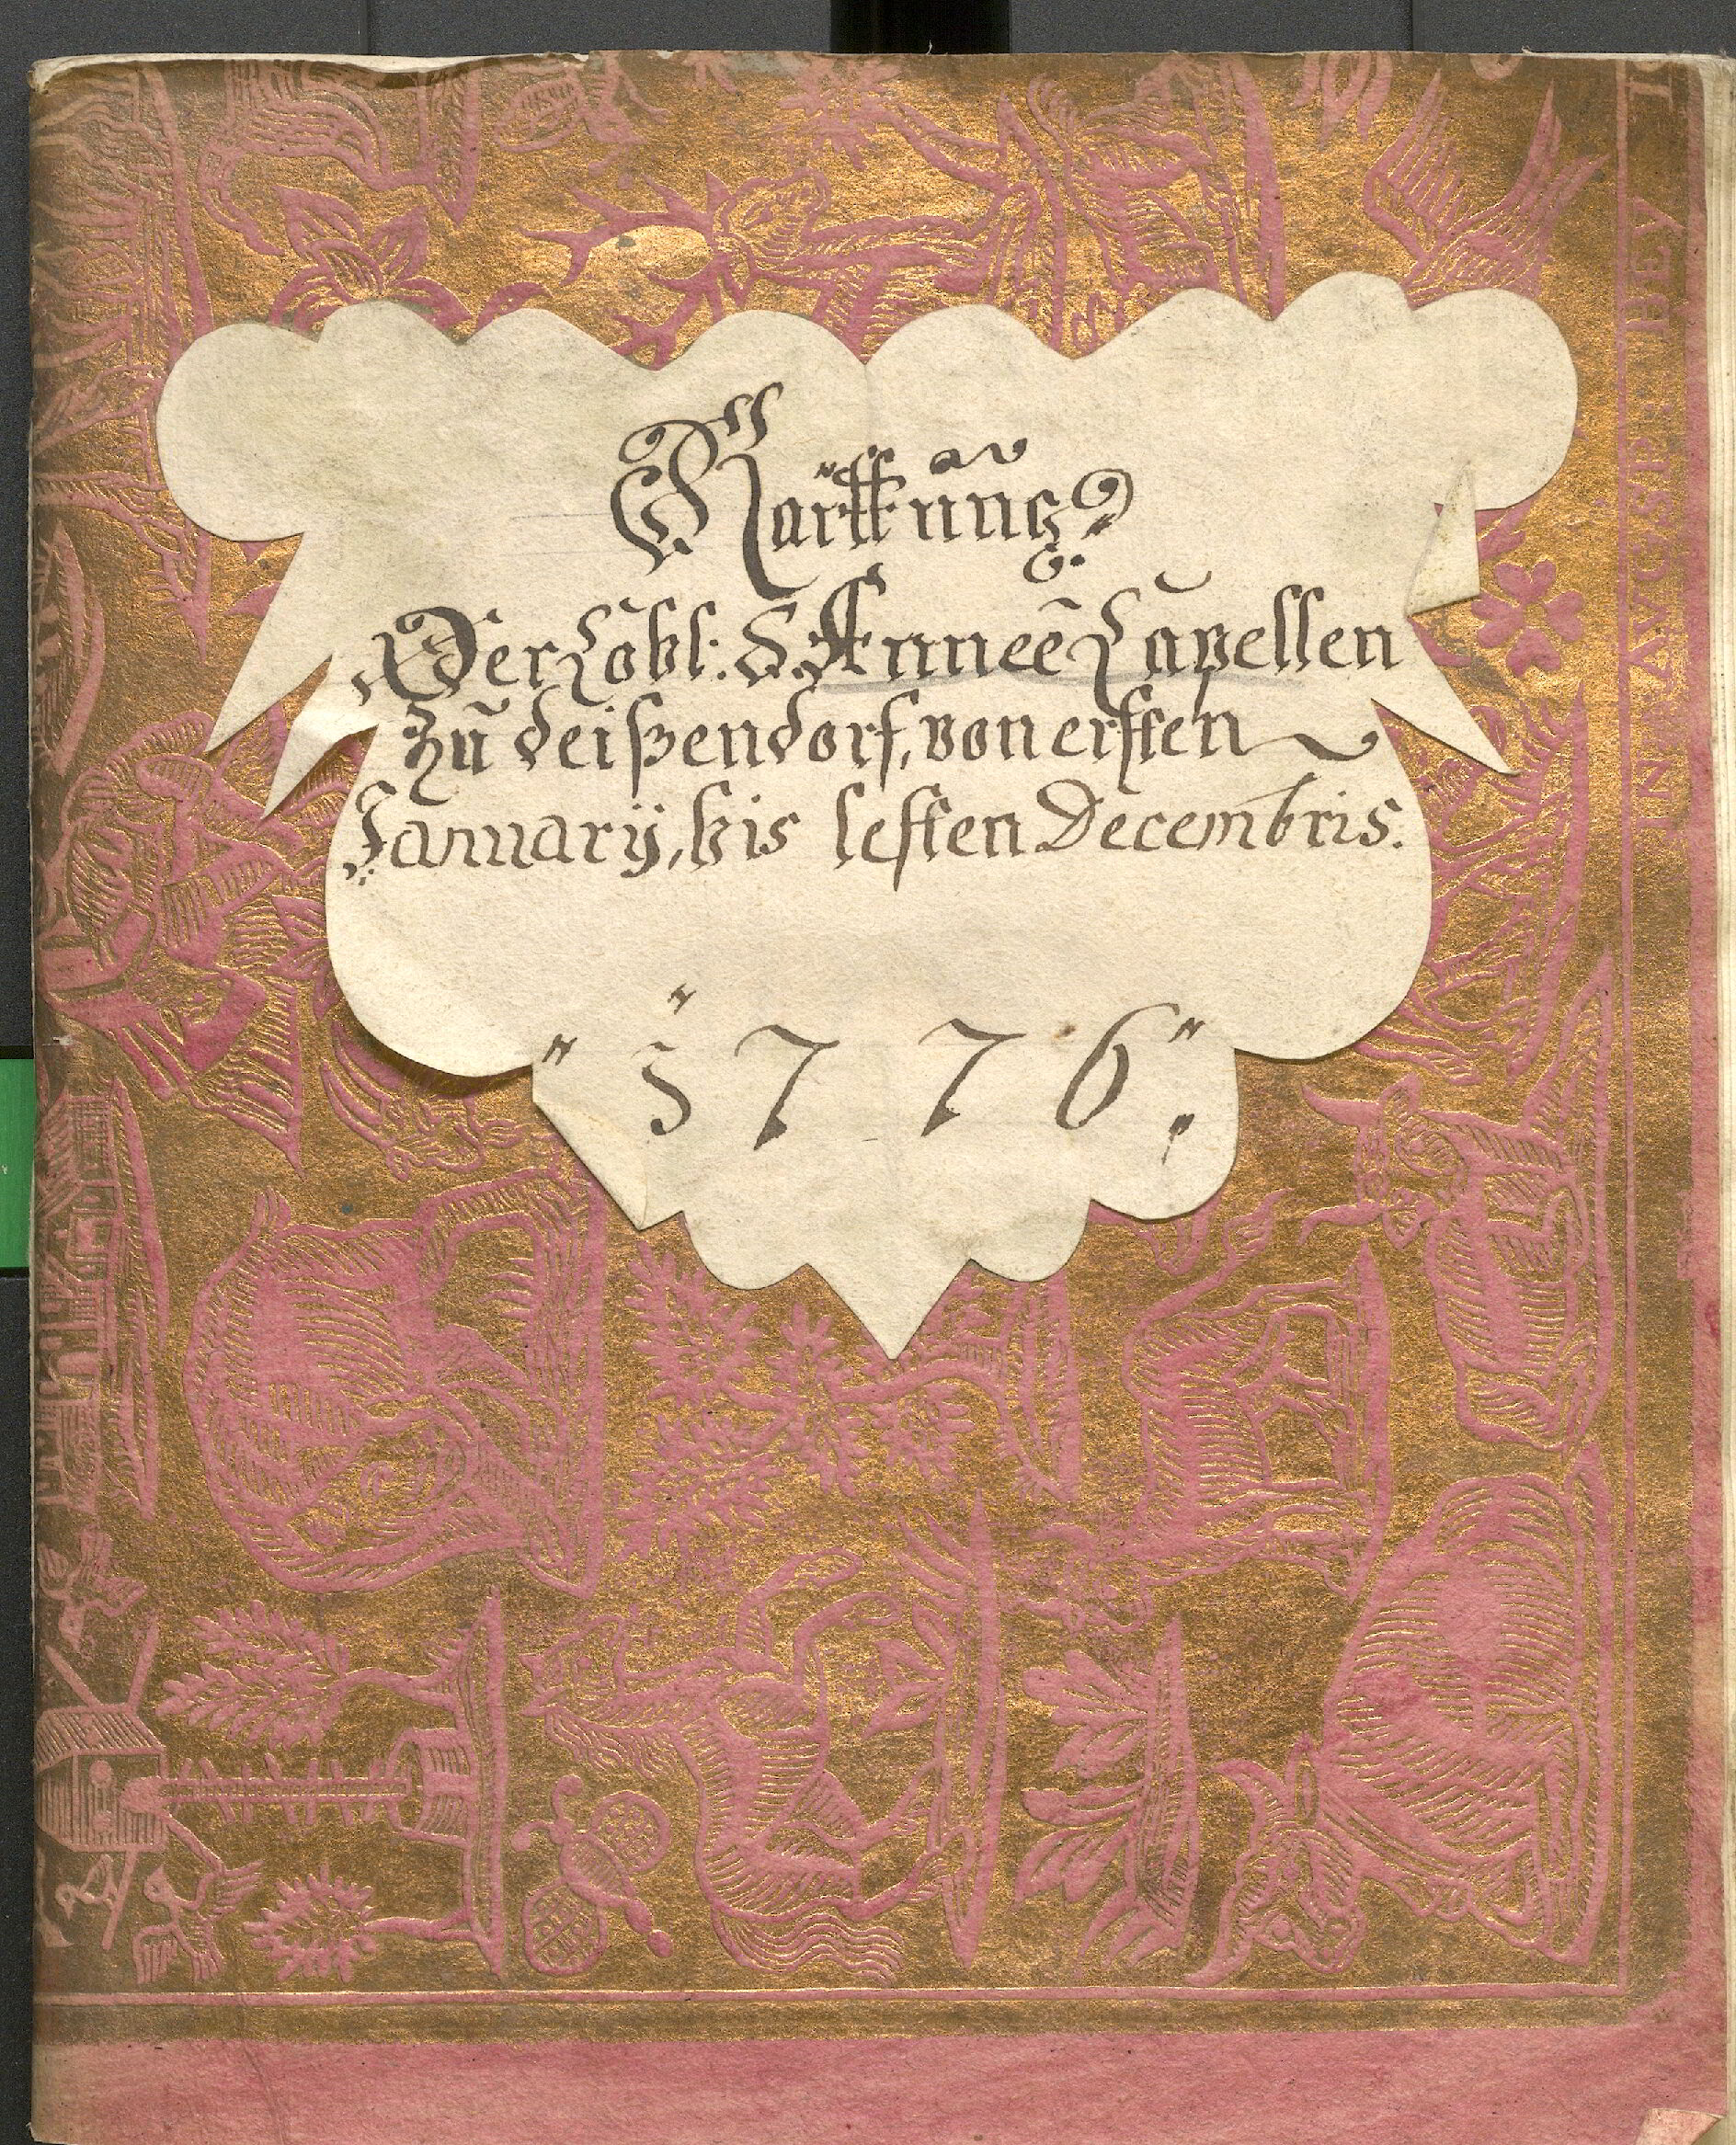 Raittung
Der Löbl: S: Annee Capellen
zu deißendorf, von ersten
January, bis lesten Decembris.
1776.
IN AVGSPURG BEY